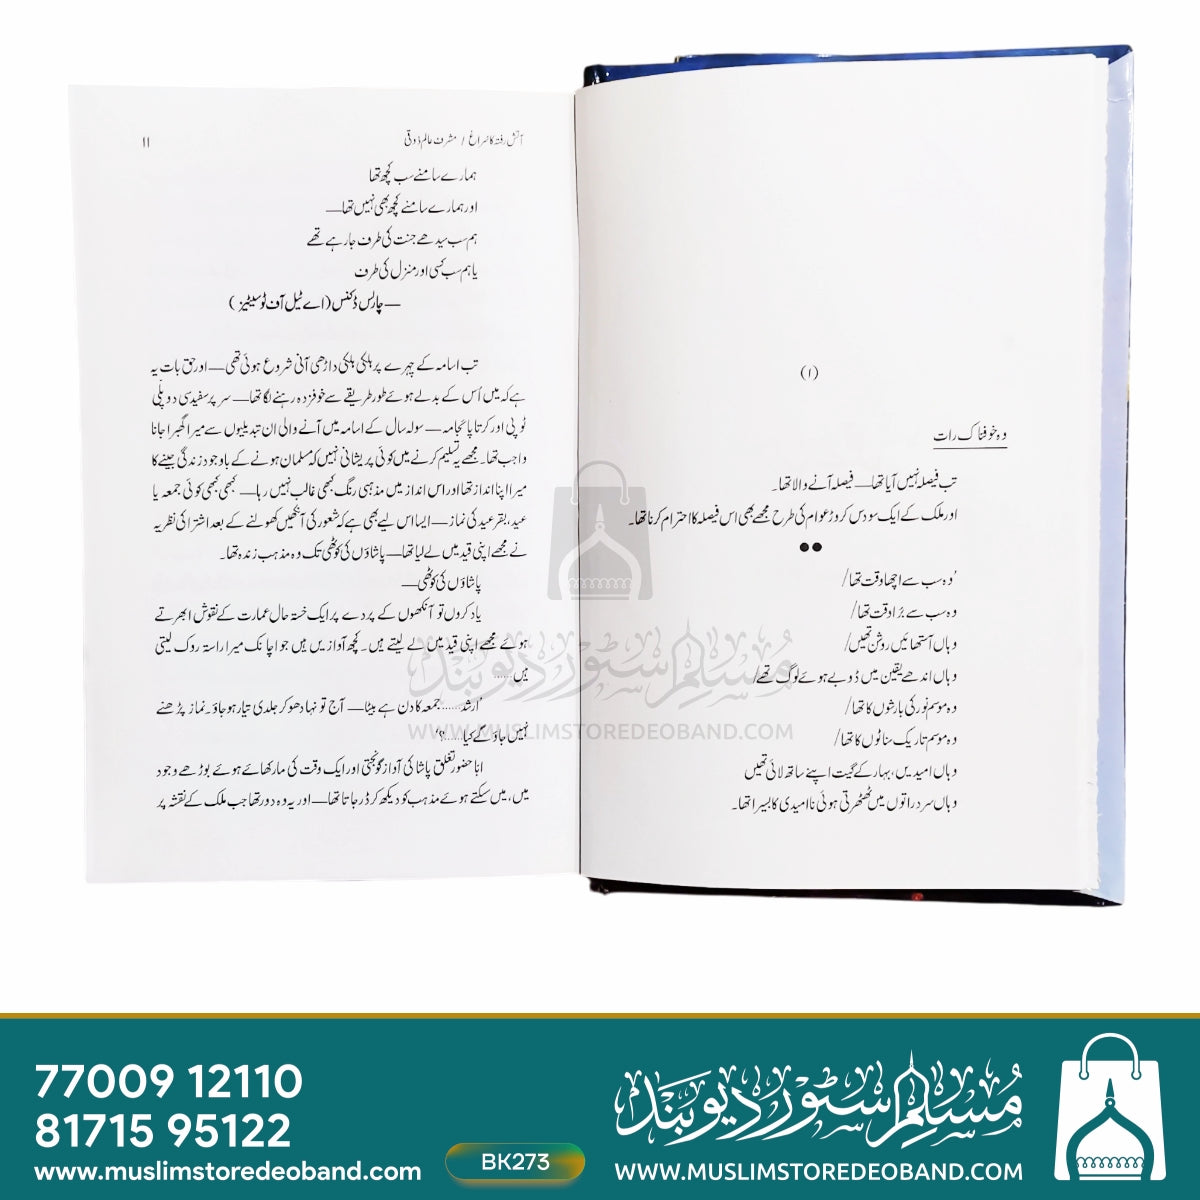 (۱)
وہ خوفناک رات
تب فیصلہ نہیں آیا تھا — فیصلہ آنے والا تھا۔
اور ملک کے ایک سو دس کروڑ عوام کی طرح مجھے بھی اس فیصلہ کا احترام کرنا تھا۔
●●
’وہ سب سے اچھا وقت تھا/
وہ سب سے برا وقت تھا/
وہاں آستھائیں روشن تھیں/
وہاں اندھے یقین میں ڈوبے ہوئے لوگ تھے/
وہ موسم نور کی بارشوں کا تھا/
وہ موسم تاریک سناٹوں کا تھا/
وہاں امیدیں، بہار کے گیت اپنے ساتھ لائی تھیں
وہاں سرد راتوں میں ٹھٹھرتی ہوئی ناامیدی کا بسیرا تھا۔
آتش رفتہ کا سراغ / مشرف عالم ذوقی ۱۱
ہمارے سامنے سب کچھ تھا
اور ہمارے سامنے کچھ بھی نہیں تھا —
ہم سب سیدھے جنت کی طرف جا رہے تھے
یا ہم سب کسی اور منزل کی طرف
— چارلس ڈکنس (اے ٹیل آف ٹو سیٹیز)
تب اسامہ کے چہرے پر ہلکی ہلکی داڑھی آنی شروع ہوئی تھی — اور حق بات یہ
ہے کہ میں اُس کے بدلے ہوئے طور طریقے سے خوفزدہ رہنے لگا تھا — سر پر سفید سی دو پلّی
ٹوپی اور کرتا پائجامہ — سولہ سال کے اسامہ میں آنے والی ان تبدیلیوں سے میرا گھبرا جانا
واجب تھا۔ مجھے یہ تسلیم کرنے میں کوئی پریشانی نہیں کہ مسلمان ہونے کے باوجود زندگی جینے کا
میرا اپنا انداز تھا اور اس انداز میں مذہبی رنگ کبھی غالب نہیں رہا — کبھی کبھی کوئی جمعہ یا
عید، بقر عید کی نماز — ایسا اس لیے بھی ہے کہ شعور کی آنکھیں کھولنے کے بعد اشتراکی نظریہ
نے مجھے اپنی قید میں لے لیا تھا — پاشاؤں کی کوٹھی تک وہ مذہب زندہ تھا۔
پاشاؤں کی کوٹھی —
یاد کروں تو آنکھوں کے پردے پر ایک خستہ حال عمارت کے نقوش ابھرتے
ہوئے مجھے اپنی قید میں لے لیتے ہیں۔ کچھ آوازیں ہیں جو اچانک میرا راستہ روک لیتی
ہیں......
’ارشد...... جمعہ کا دن ہے بیٹا — آج تو نہا دھو کر جلدی تیار ہو جاؤ۔ نماز پڑھنے
نہیں جاؤ گے کیا......؟‘
ابّا حضور تغلق پاشا کی آواز گونجتی اور ایک وقت کی مار کھائے ہوئے بوڑھے وجود
میں، میں سکتے ہوئے مذہب کو دیکھ کر ڈر جاتا تھا — اور یہ وہ دور تھا جب ملک کے نقشہ پر
مسلم سٹور دیوبند
WWW.MUSLIMSTOREDEOBAND.COM
77009 12110
81715 95122
www.muslimstoredeoband.com
BK273
مسلم سٹور دیوبند
WWW.MUSLIMSTOREDEOBAND.COM